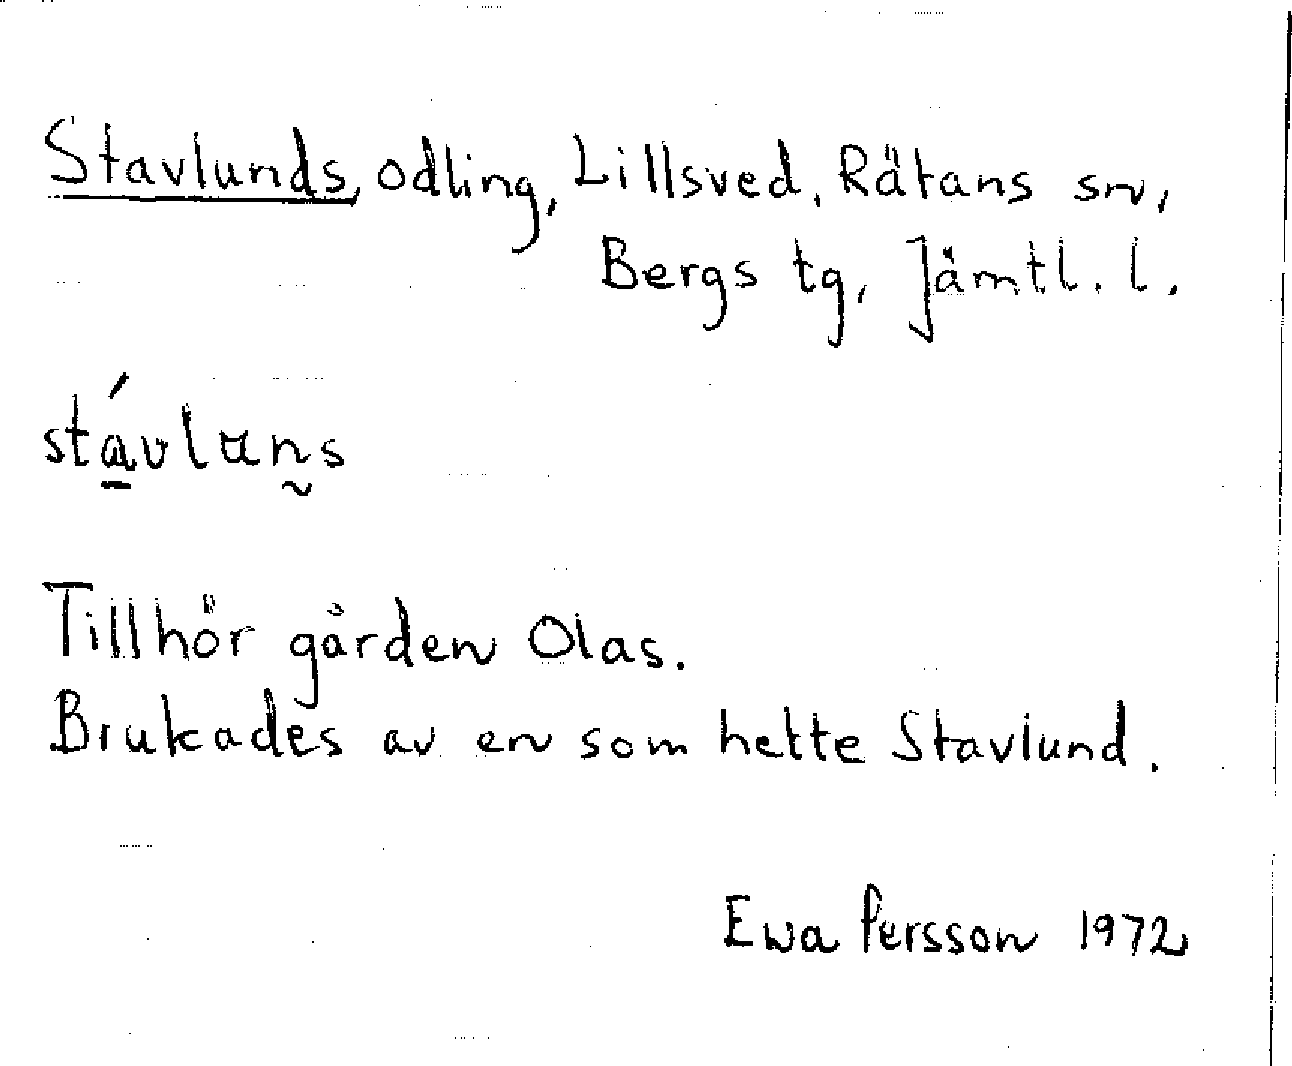 Stavlunds, odling, Lillsved, Rätans sn,
Bergs tg, Jämtl. l.
stávluns
Tillhör gården Olas.
Brukades av en som hette Stavlund.
Ewa Persson 1972